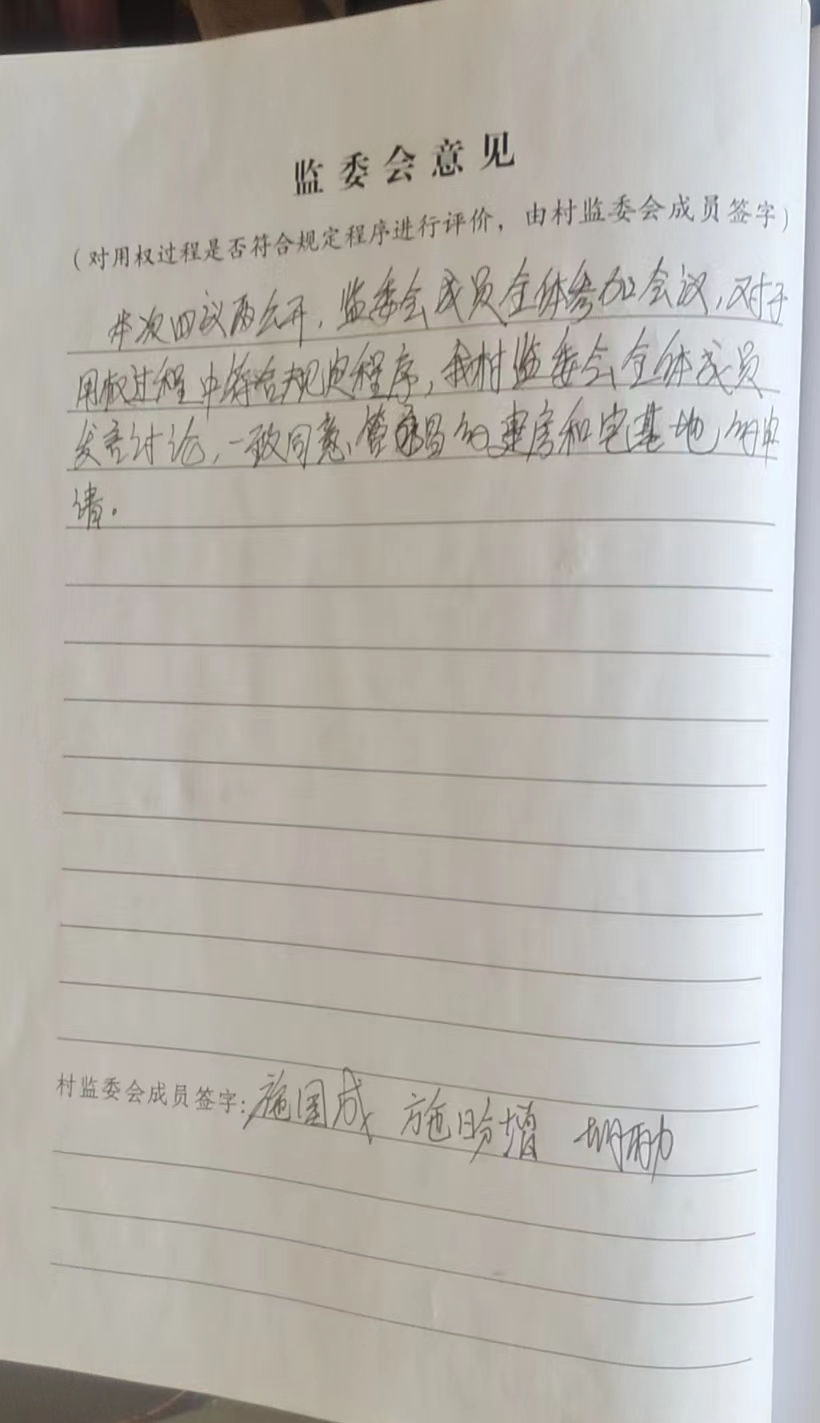 监委会意见
（对用权过程是否符合规定程序进行评价，由村监委会成员签字）
本次四议两公开，监委会成员全体参加会议，对于
用权过程中符合规定程序，我村监委会全体成员
发言讨论，一致同意管昌的建房和宅基地的申
请。
村监委会成员签字：施国成 施盼增 胡励